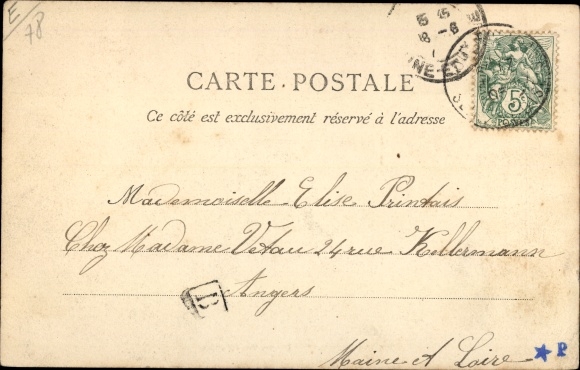 E
78
CARTE-POSTALE
Ce côté est exclusivement réservé à l'adresse
5c
Mademoiselle Elise Printais
Chez Madame Vétau 24 rue Kellermann
Angers
Maine et Loire
P